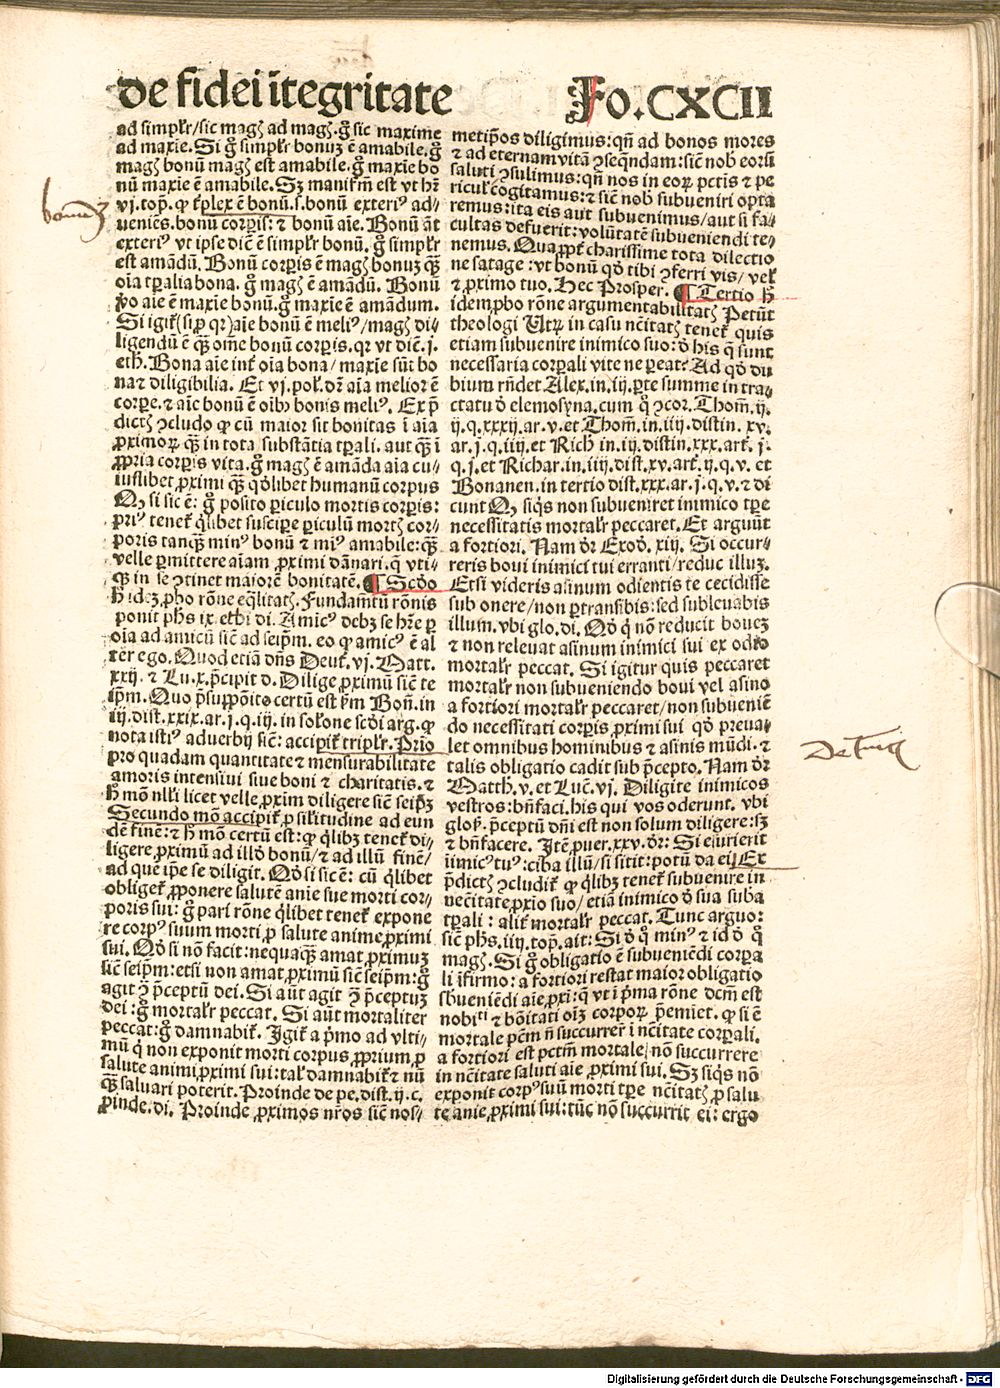 de fidei ītegritate
Fo.CXCII
ad simplr̄/sic magꝭ ad magꝭ.gͦ sic maxime
ad maxīe. Si gͦ simplr̄ bonuꝫ ē amabile.gͦ
magꝭ bonū magꝭ est amabile.gͦ maxīe bo
nū maxīe ē amabile. Sꝫ manifm̄ est vt hr̄
vj.top̄.ꝙ tr̄plex ē bonū.s.bonū exteriꝰ ad⸗
ueniēs.bonū corpꝑis: ⁊ bonū aīe. Bonū āt
exteriꝰ vt ipse diē ē simplr̄ bonū.gͦ simplr̄
est amādū. Bonū corpꝑis ē magꝭ bonuꝫ qꝫ̄
oīa tꝑalia bona.gͦ magꝭ ē amādū. Bonū
ꝟo aīe ē maxīe bonū.gͦ maxīe ē amādum.
Si igit̄(sip̄ qr̄)aīe bonū ē meliꝰ/magꝭ di⸗
ligendū ē qꝫ̄ om̄e bonū corpꝑis.qr vt diē.j.
eth. Bona aīe int̄ oīa bona/maxīe sūt bo
na ⁊ diligibilia. Et vj.pol.dr̄ aīa meliore ē
corpe.⁊ aīe bonū ē oībꝰ bonis meliꝰ. Ex p̄
dictꝭ ꝯcludo ꝙ cū maior sit bonitas ī aīa
ꝓximoꝝ qꝫ̄ in tota substātia tꝑali.aut qꝫ̄ ī
ꝓpria corpꝑis vita.gͦ magꝭ ē amāda aīa cu⸗
iuslibet ꝓximi qꝫ̄ qdlibet humanū corpus
Qꝫ si sic ē: gͦ posito ꝑiculo mortis corpꝑis:
priꝰ tenet̄ qͥlibet suscipe ꝑiculū mortꝭ cor⸗
poris tanqꝫ minꝰ bonū ⁊ miꝰ amabile:qꝫ̄
velle ꝑmittere aīam ꝓximi dānari.q̄ vti⸗
qꝫ̄ in se ꝯtinet maiorē bonitatē. ¶ Scd̄o
hͦ idez ꝓbo rōne eqlitatꝭ. Fundam̄tū rōnis
ponit ph̄s ix.ethi.di. Amicꝰ debꝫ se hr̄e ꝑ
oīa ad amicū siē ad seip̄m. eo ꝙ amicꝰ ē al
ter ego. Quod etiā dn̄s Deut̄.vj. Matt.
xxij.⁊ Lu.x.p̄cipit d. Dilige ꝓximū siē te
ip̄m. Quo p̄supp̄oīto certū est ẜm Bon̄.in
iij.dist.xxix.ar.j.q.iij.in solone scd̄i arg.ꝙ
nota istiꝰ aduerbij siē: accipit̄ triplr̄. Prīo
pro quadam quantitate ⁊ mensurabilitate
amoris intensiui siue boni ⁊ charitatis.⁊
hͦ mō nlli licet velle ꝓxim diligere siē seip̄ꝫ
Secundo mō accipit̄ ꝓ silitudine ad eun
dē finē:⁊ hͦ mō certū est:ꝙ qͥlibꝫ tenet̄ di⸗
ligere ꝓximū ad illd̄ bonū/⁊ ad illū finē/
ad quē ip̄e se diligit. Qd̄ si sic ē: cū qͥlibet
obliget̄ ꝓponere salutē anie sue morti cor⸗
poris sui: gͦ pari rōne qͥlibet tenet̄ expone
re corpꝰ suum morti ꝓ salute anime ꝓximi
sui. Qd̄ si nō facit: nequaqꝫ amat ꝓximuꝫ
siē seip̄m:etsi non amat ꝓximū siē seip̄m:gͦ
agit ꝯ p̄ceptū dei. Si aūt agit ꝯ p̄ceptuꝫ
dei : gͦ mortalr̄ peccat. Si aūt mortaliter
peccat:gͦ damnabit̄. Igit̄ a p̄mo ad vlti⸗
mū q̄ non exponit morti corpus ꝓprium ꝓ
salute animi ꝓximi sui:tal̄ damnabit̄ ⁊ nū
qꝫ̄ saluari poterit. Proinde de pe.dist.ij.c.
ꝓinde.di. Proinde ꝓximos nr̄os siē nos⸗
metip̄os diligimus:qn̄ ad bonos mores
⁊ ad eternam vitā ꝯseqndam:siē nob eorū
saluti ꝯsulimus:qn̄ nos in eoꝝ pctīs ⁊ pe
ricul̄ cogitamus:⁊ siē nob subueniri opta
remus:ita eis aut subuenimus/aut si fa⸗
cultas defuerit:volūtatē subueniendi te⸗
nemus. Quapp̄t charissime tota dilectio
ne satage :vt bonū qd̄ tibi ꝯferri vis/ vel
⁊ ꝓximo tuo. Hec Prosper. ¶ Tertio hͦ
idem ꝓbo rōne argumentabilitatꝭ Petūt
theologi Utꝝ in casu nc̄itatꝭ tenet̄ quis
etiam subuenire inimico suo: d̄ his q̄ sunt
necessaria corpali vite ne pereat? Ad qd̄ du
bium rn̄det Alex.in.iij.ꝑte summe in tra⸗
ctatu d̄ elemosyna.cum q̄ ꝯcor. Thom̄.ij.
ij.q.xxxij.ar.v.et Thom̄.in.iiij.distin. xv.
ar.j.q.iiij.et Rich in.iij.distin.xxx.art̄. j.
q.j.et Richar.in.iiij.dist.xv.art̄.ij.q.v. et
Bonauen.in tertio dist.xxx.ar.j.q.v.⁊ di
cunt Qꝫ siqͥs non subueniret inimico tꝑe
necessitatis mortalr̄ peccaret. Et arguūt
a fortiori. Nam dr̄ Exod̄. xiij. Si occur⸗
reris boui inimici tui erranti/reduc illuꝫ.
Etsi videris asinum odientis te cecidisse
sub onere/non ꝑtransibis:sed subleuabis
illum.vbi glo.di. Qd̄ q̄ nō reducit bouez
⁊ non releuat asinum inimici sui ex odio
mortalr̄ peccat. Si igitur quis peccaret
mortalr̄ non subueniendo boui vel asino
a fortiori mortalr̄ peccaret/non subueniē
do necessitati corpis ꝓximi sui qd̄ preua⸗
let omnibus hominibus ⁊ asinis mūdi.⁊
talis obligatio cadit sub p̄cepto. Nam dr̄
Matth.v.et Luē.vj. Diligite inimicos
vestros:bn̄faci.his qui vos oderunt. vbi
glos̄.p̄ceptū dn̄i est non solum diligere:sꝫ
⁊ bn̄facere. Itē ꝓuer.xxv.dr̄: Si esurierit
īimicꝰtuꝰ:ciba illū/si sitit:potū da ei/ Ex
p̄dictꝭ ꝯcludit̄ ꝙ qͥlibꝫ tenet̄ subuenire in
nec̄itate ꝓxīo suo/ etiā inimico d̄ sua suba
tꝑali : alit̄ mortalr̄ peccat. Tunc arguo:
siē phs.iij.top̄.ait: Si d̄ q̄ minꝰ ⁊ id d̄ q̄
magꝭ. Si gͦ obligatio ē subueniēdi corpa
li īfirmo: a fortiori restat maior obligatio
sbueniēdi aīe ꝓxi:q̄ vt ī p̄ma rōne dcm̄ est
nobiⁱⁱ ⁊ bōitati oīꝫ corporꝝ p̄emiet. ꝙ si ē
mortale pcm̄ n̄ succurrer̄ ī nc̄itate corpali.
a fortiori est pctm̄ mortale/nō succurrere
in nc̄itate saluti aīe ꝓximi sui. Sꝫ siqͥs nō
exponit corpꝰ suū morti tꝑe nc̄itatꝭ ꝓ salu
te anie ꝓximi sui:tūc nō succurrit ei: ergo
Digitalisierung gefördert durch die Deutsche Forschungsgemeinschaft - DFG